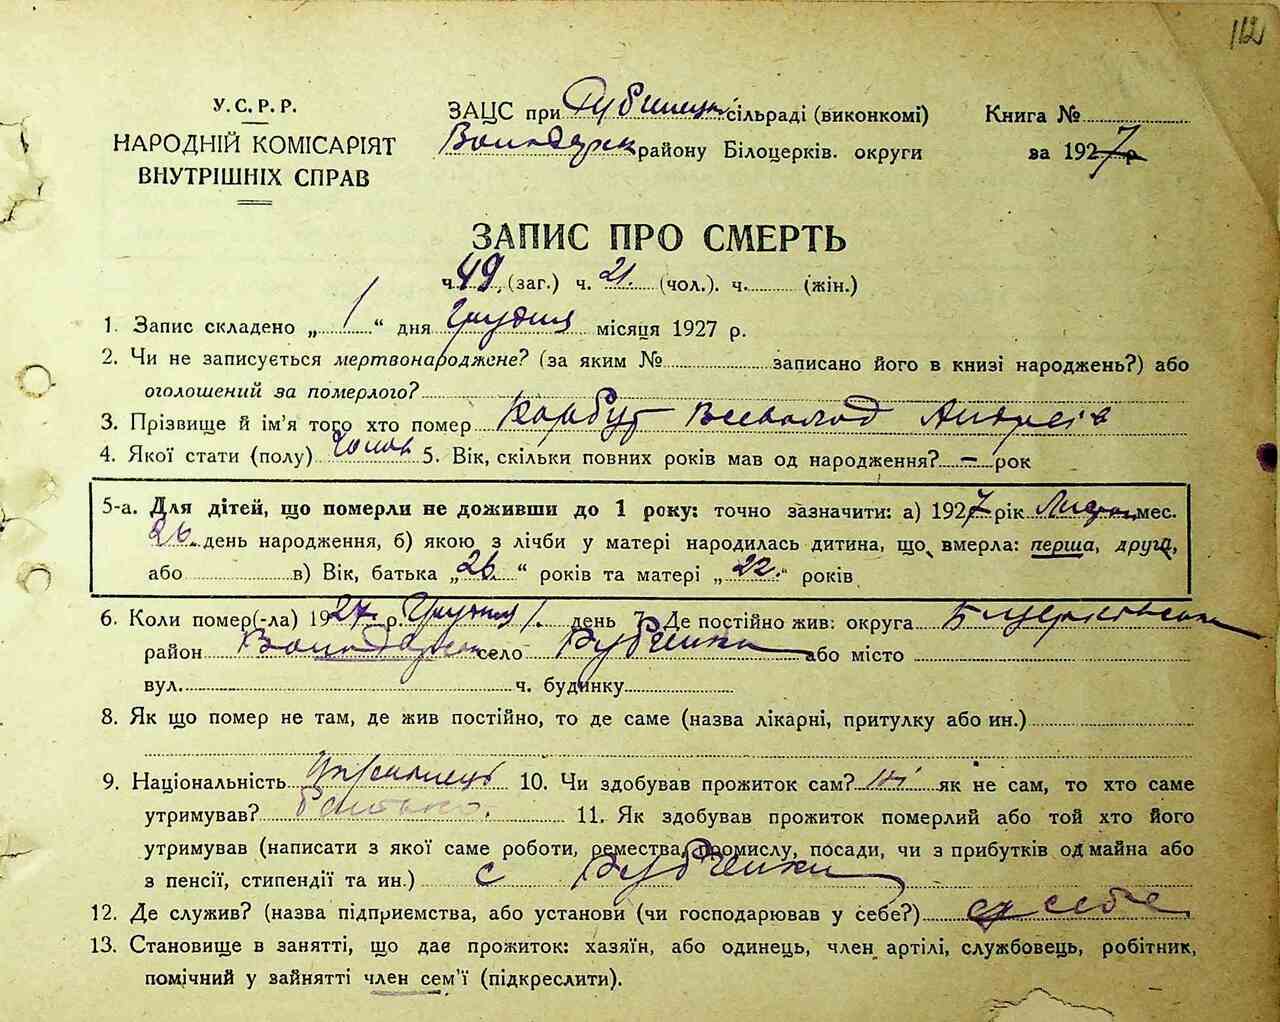 112
У.С.Р.Р.
НАРОДНІЙ КОМІСАРІЯТ
ВНУТРІШНІХ СПРАВ
ЗАЦС при сільраді (виконкомі)
Володарськ району Білоцерків. округи
Книга №
за 1927 р
ЗАПИС ПРО СМЕРТЬ
ч. 49 (заг.) ч. 21. (чол.). ч. (жін.)
1. Запис складено „ 1 “ дня Грудня місяця 1927 р.
2. Чи не записується мертвонароджене? (за яким № записано його в книзі народжень?) або
оголошений за померлого?
3. Прізвище й ім'я того хто помер Корбут Всеволод Андреів
4. Якої стати (полу) Чолов 5. Вік, скільки повних років мав од народження? – рок
5-а. Для дітей, що померли не доживши до 1 року: точно зазначити: а) 1927 рік мес.
26 день народження, б) якою з лічби у матері народилась дитина, що вмерла: перша, друга,
або в) Вік, батька „ 26 “ років та матері „ 22. “ років
6. Коли помер(-ла) 1927 р. Грудня 1. день 7. Де постійно жив: округа Білцерківська
район Володарськ село Рубченки або місто
вул. ч. будинку
8. Як що помер не там, де жив постійно, то де саме (назва лікарні, притулку або ин.)
9. Національність Українець 10. Чи здобував прожиток сам? ні як не сам, то хто саме
утримував? батько. 11. Як здобував прожиток померлий або той хто його
утримував (написати з якої саме роботи, ремества, промислу, посади, чи з прибутків од майна або
з пенсії, стипендії та ин.) с Рубченки
12. Де служив? (назва підприемства, або установи (чи господарював у себе?) у себе
13. Становище в занятті, що дає прожиток: хазяїн, або одинець, член артілі, службовець, робітник,
помічний у зайнятті член сем'ї (підкреслити).